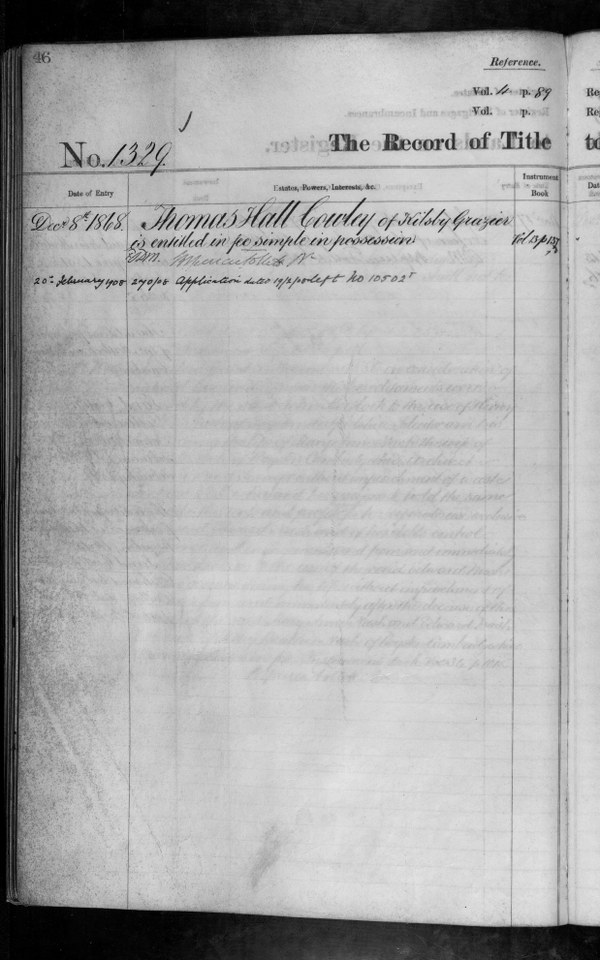 46
Reference.
Vol. 11 p. 89
Vol. p.
The Record of Title
No. 1329
Date of Entry
Estates, Powers, Interests, &c.
Instrument Book
Decr 8th 1868. Thomas Hall Cowley of Kilsby Grazier
is entitled in fee simple in possession
Vol 13 p 137
20th February 1908 270/08 Application dated 19/2/08 left No 10502